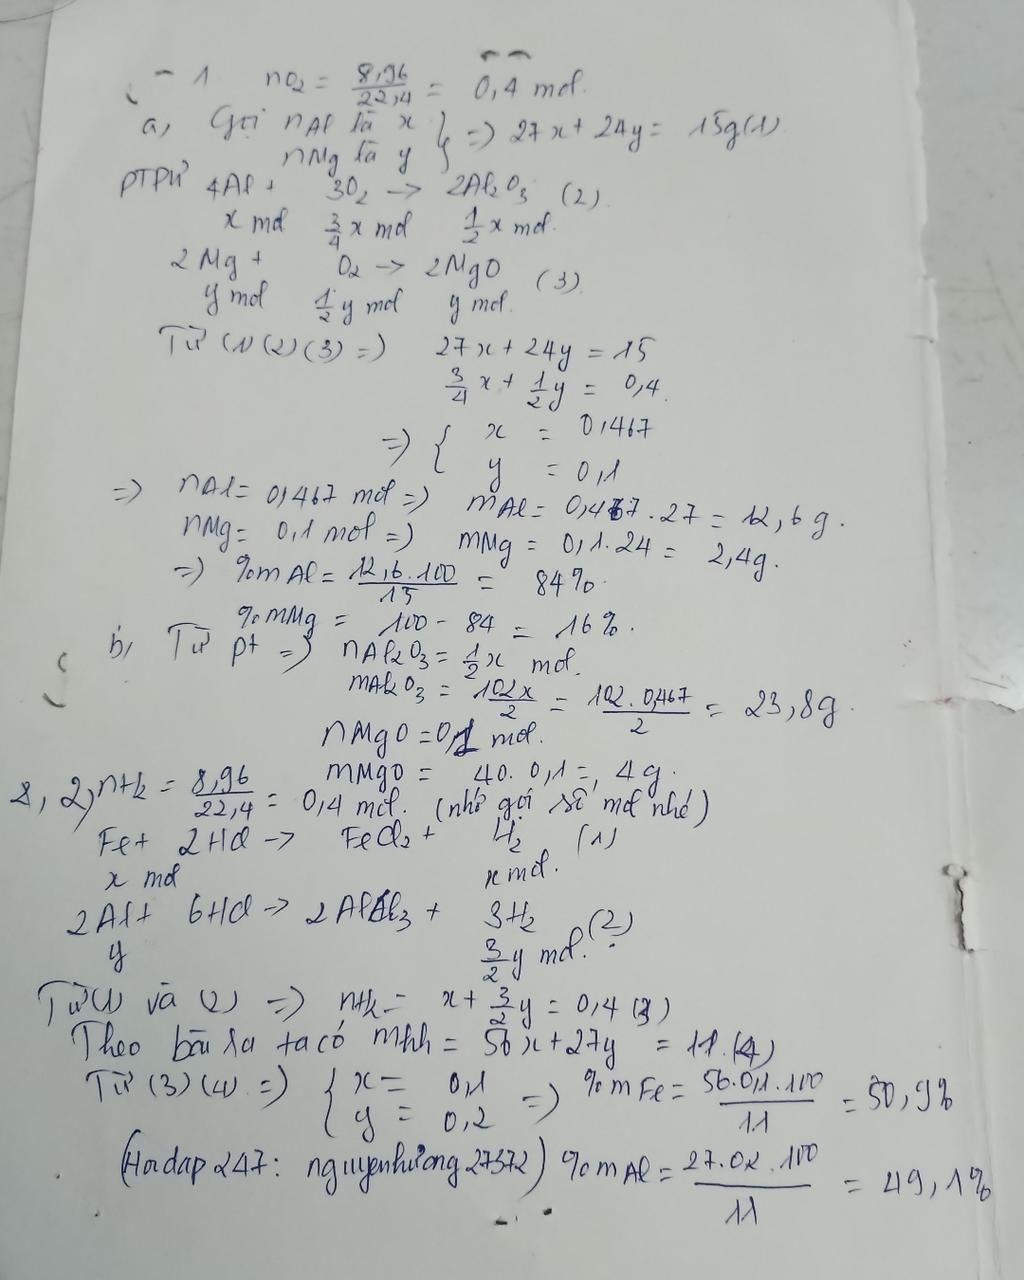 1 nO₂ = 8,96/22,4 = 0,4 mol.
a, Gọi nAl là x } => 27x + 24y = 15g (1)
nMg là y
PTPƯ 4Al + 3O₂ -> 2Al₂O₃ (2).
x mol 3/4 x mol 1/2 x mol.
2Mg + O₂ -> 2MgO (3).
y mol 1/2 y mol y mol.
Từ (1)(2)(3) => 27x + 24y = 15
3/4 x + 1/2 y = 0,4.
=> { x = 0,467
y = 0,1
=> nAl = 0,467 mol => mAl = 0,467.27 = 12,6g.
nMg = 0,1 mol => mMg = 0,1.24 = 2,4g.
=> %mAl = 12,6.100/15 = 84%.
%mMg = 100 - 84 = 16%.
b, Từ pt => nAl₂O₃ = 1/2 x mol.
mAl₂O₃ = 102x/2 = 102.0,467/2 = 23,8g.
nMgO = 0,1 mol.
mMgO = 40.0,1 = 4g.
2, nH₂ = 8,96/22,4 = 0,4 mol. (nhớ gọi số mol nhé)
Fe + 2HCl -> FeCl₂ + H₂ (1)
x mol x mol.
2Al + 6HCl -> 2AlCl₃ + 3H₂ (2)
y 3/2 y mol.
Từ (1) và (2) => nH₂ = x + 3/2 y = 0,4 (3)
Theo bài ra ta có mhh = 56x + 27y = 11. (4)
Từ (3)(4) => { x = 0,1 => %mFe = 56.0,1.100/11 = 50,9%
y = 0,2
(Hoidap247: nguyenhuong27372) %mAl = 27.0,2.100/11 = 49,1%